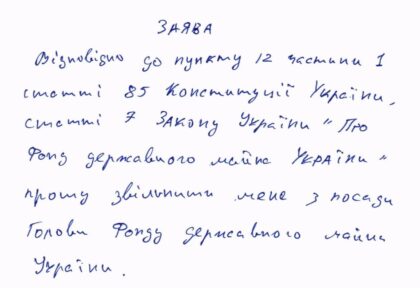 ЗАЯВА
Відповідно до пункту 12 частини I
статті 85 Конституції України,
статті 7 Закону України "Про
Фонд державного майна України"
прошу звільнити мене з посади
Голови Фонду державного майна
України.